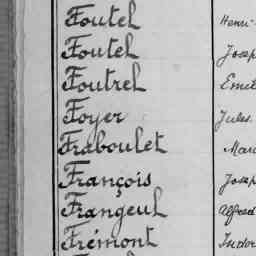 Foutel Henri
Foutel Josep
Foutrel Emil
Foyer Jules
Fraboulet Marc
François Josep
Frangeul Alfred
Frémont